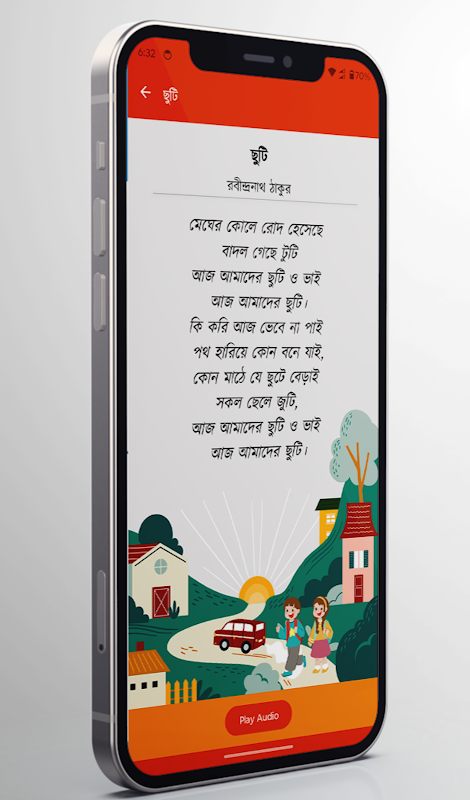 6:32
70%
ছুটি
ছুটি
রবীন্দ্রনাথ ঠাকুর
মেঘের কোলে রোদ হেসেছে
বাদল গেছে টুটি
আজ আমাদের ছুটি ও ভাই
আজ আমাদের ছুটি।
কি করি আজ ভেবে না পাই
পথ হারিয়ে কোন বনে যাই,
কোন মাঠে যে ছুটে বেড়াই
সকল ছেলে জুটি,
আজ আমাদের ছুটি ও ভাই
আজ আমাদের ছুটি।
Play Audio